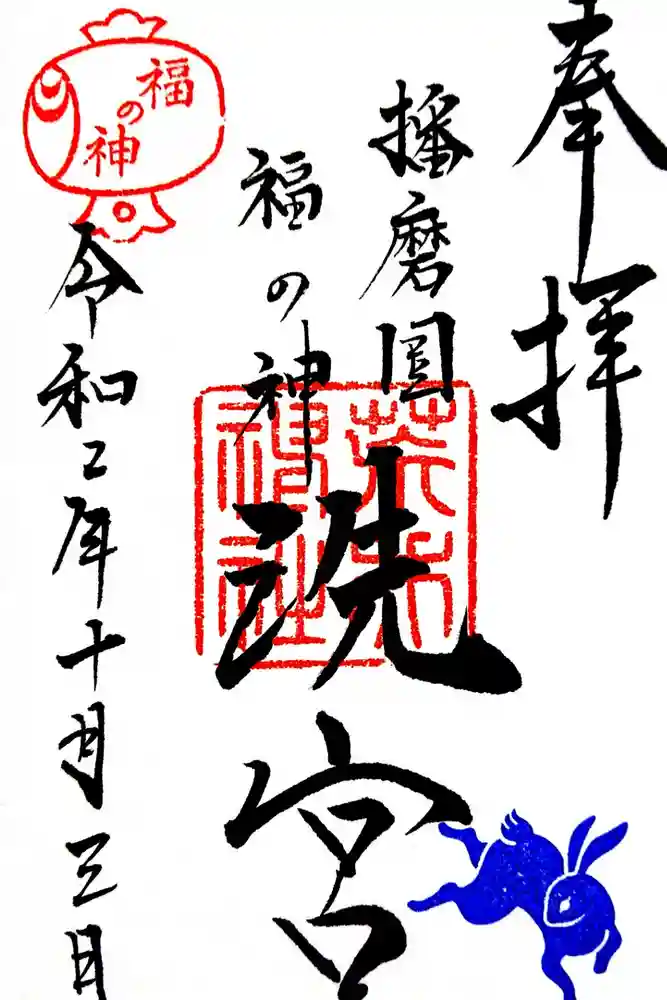 奉拝
播磨国
福の神
洗宮
令和二年十月三日
福の神
荒井神社